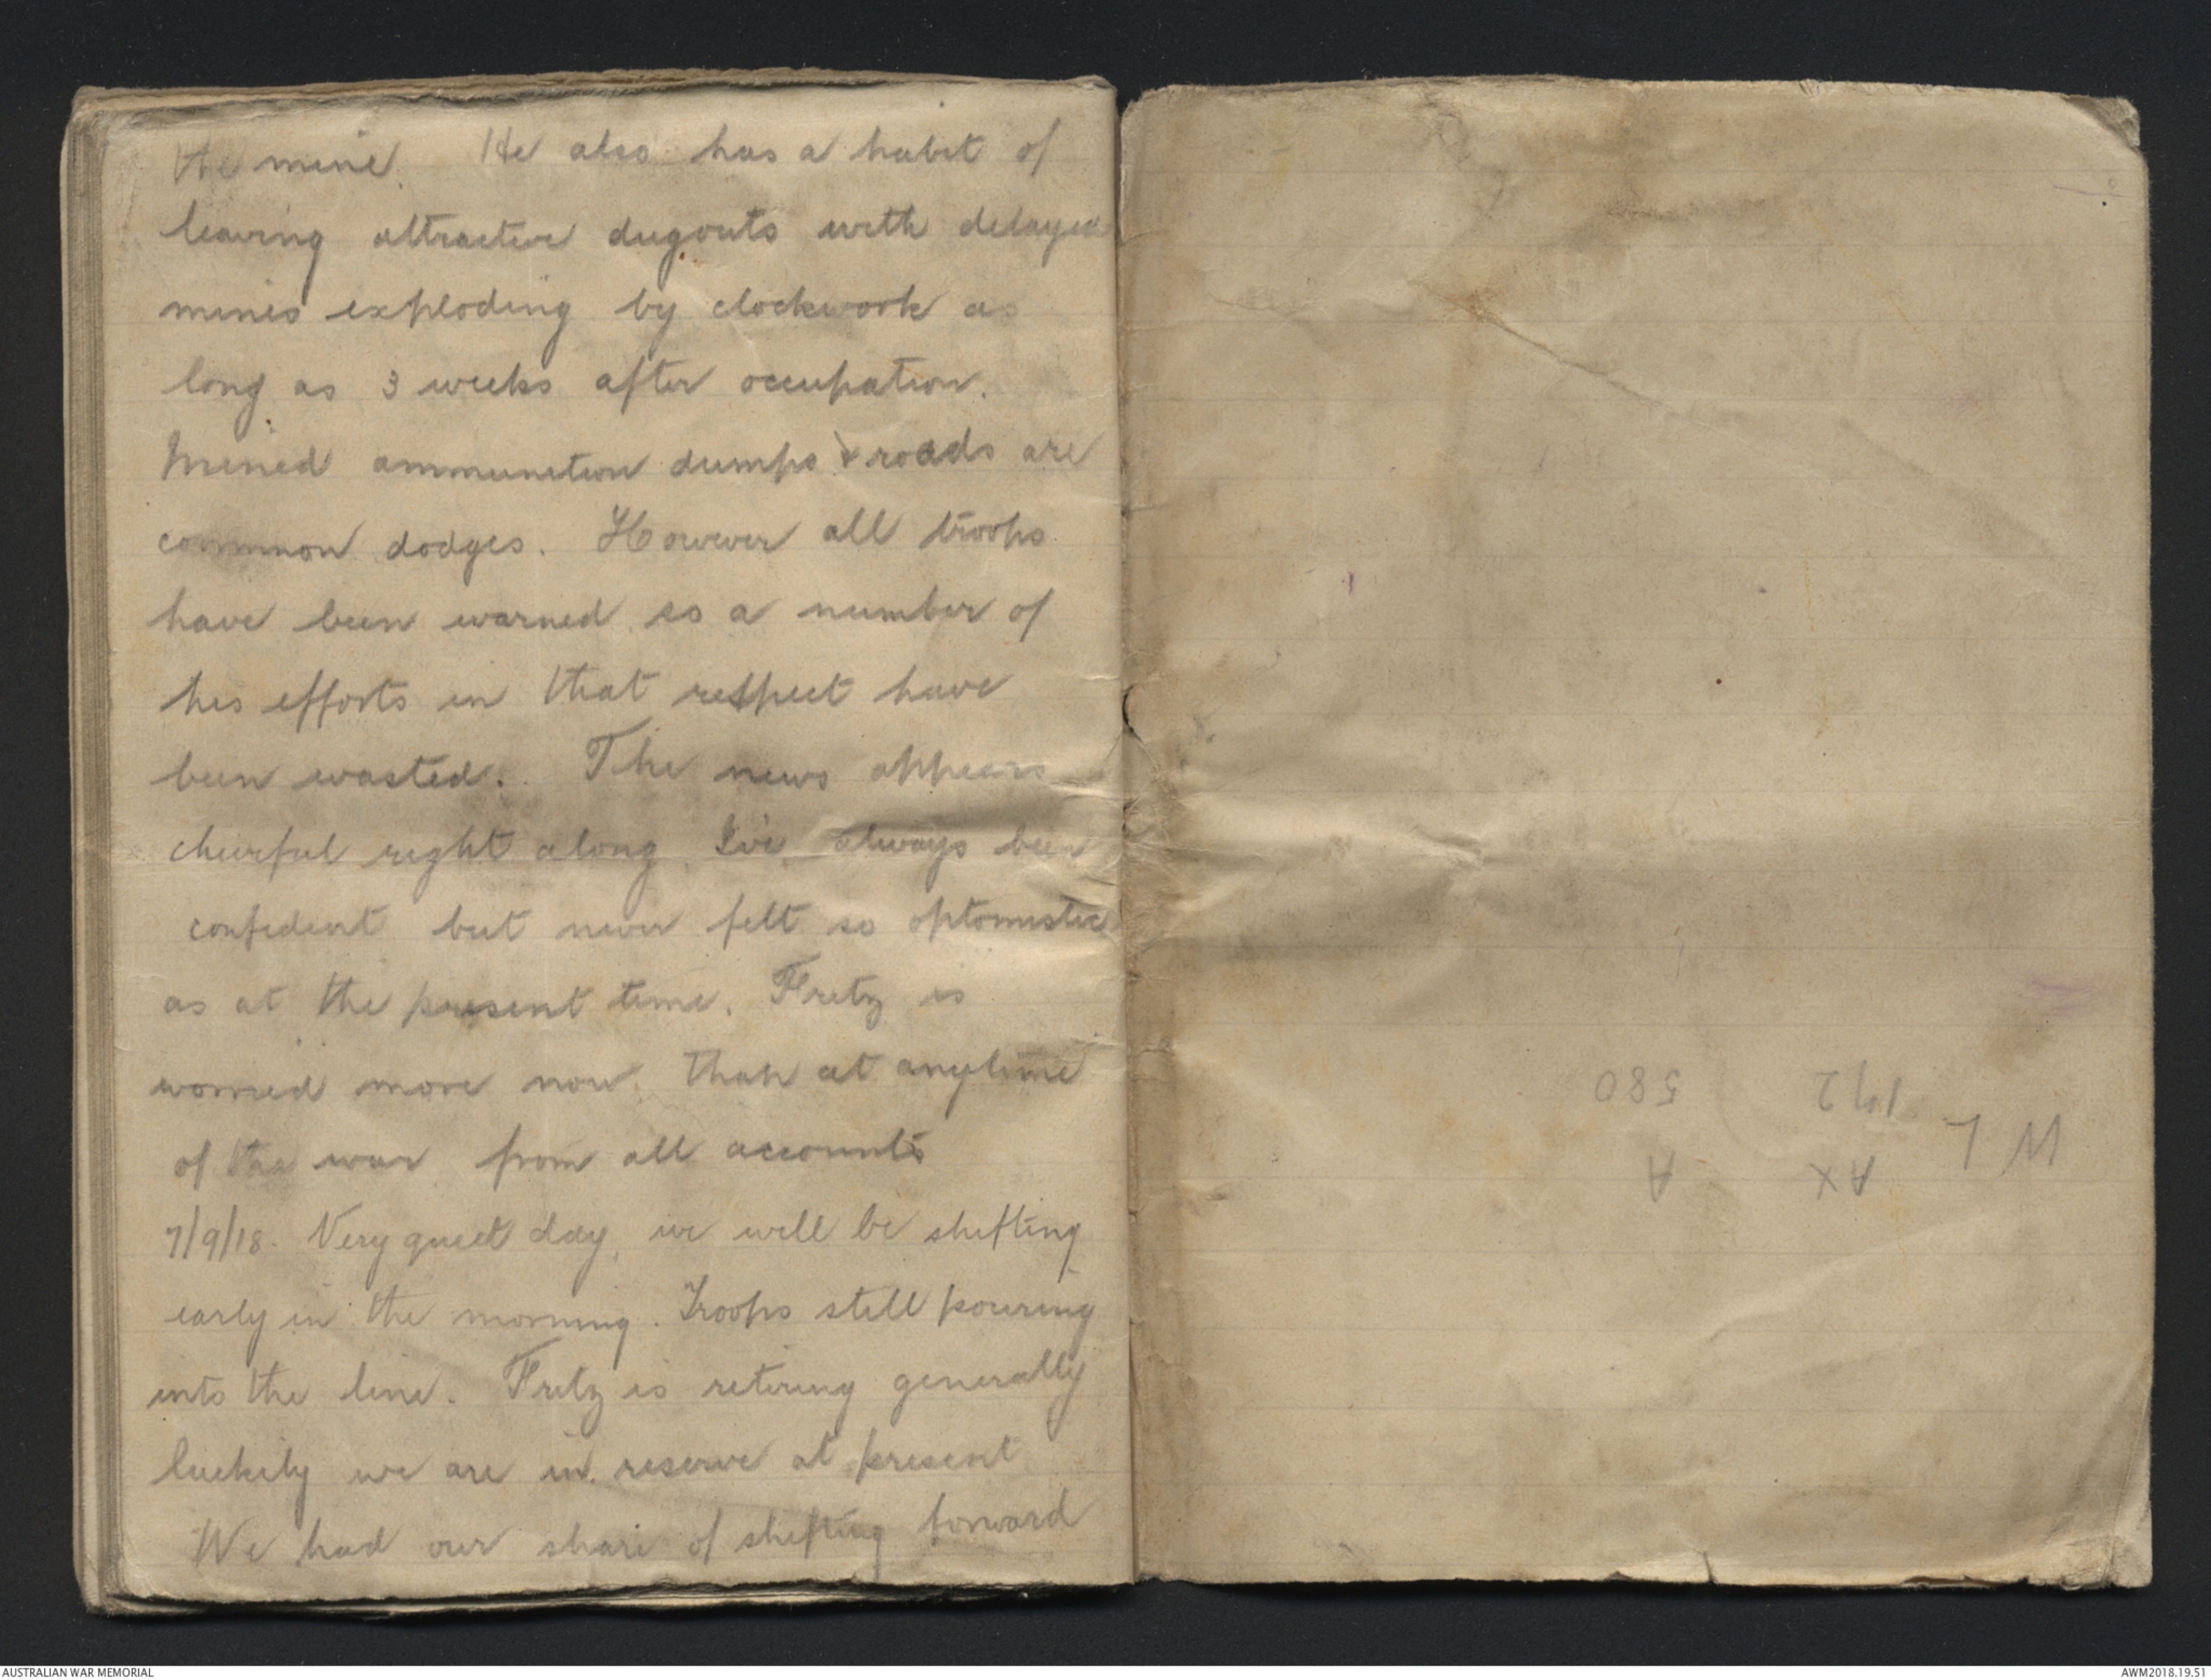 the mine. He also has a habit of
leaving attractive dugouts with delayed
mines exploding by clockwork as
long as 3 weeks after occupation.
Mined ammunition dumps & roads are
common dodges. However all troops
have been warned so a number of
his efforts in that respect have
been wasted. The news appears
cheerful right along. I've always been
confident but never felt so optomistic
as at the present time. Fritz is
worried more now than at anytime
of the war from all accounts
7/9/18. Very quiet day, we will be shifting
early in the morning. Troops still pouring
into the line. Fritz is retiring generally
luckily we are in reserve at present
We had our share of shifting forward
W L
AX A
192 580
AUSTRALIAN WAR MEMORIAL
AWM2018.19.51